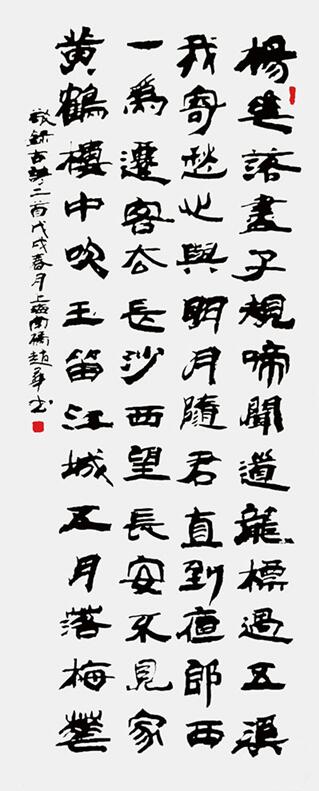 楊華落盡子規啼聞道龍標過五溪
我寄愁心與明月隨君直到夜郎西
一爲遷客去長沙西望長安不見家
黄鶴樓中吹玉笛江城五月落梅華
敬錄古詩二首戊戌春月上海南趙书